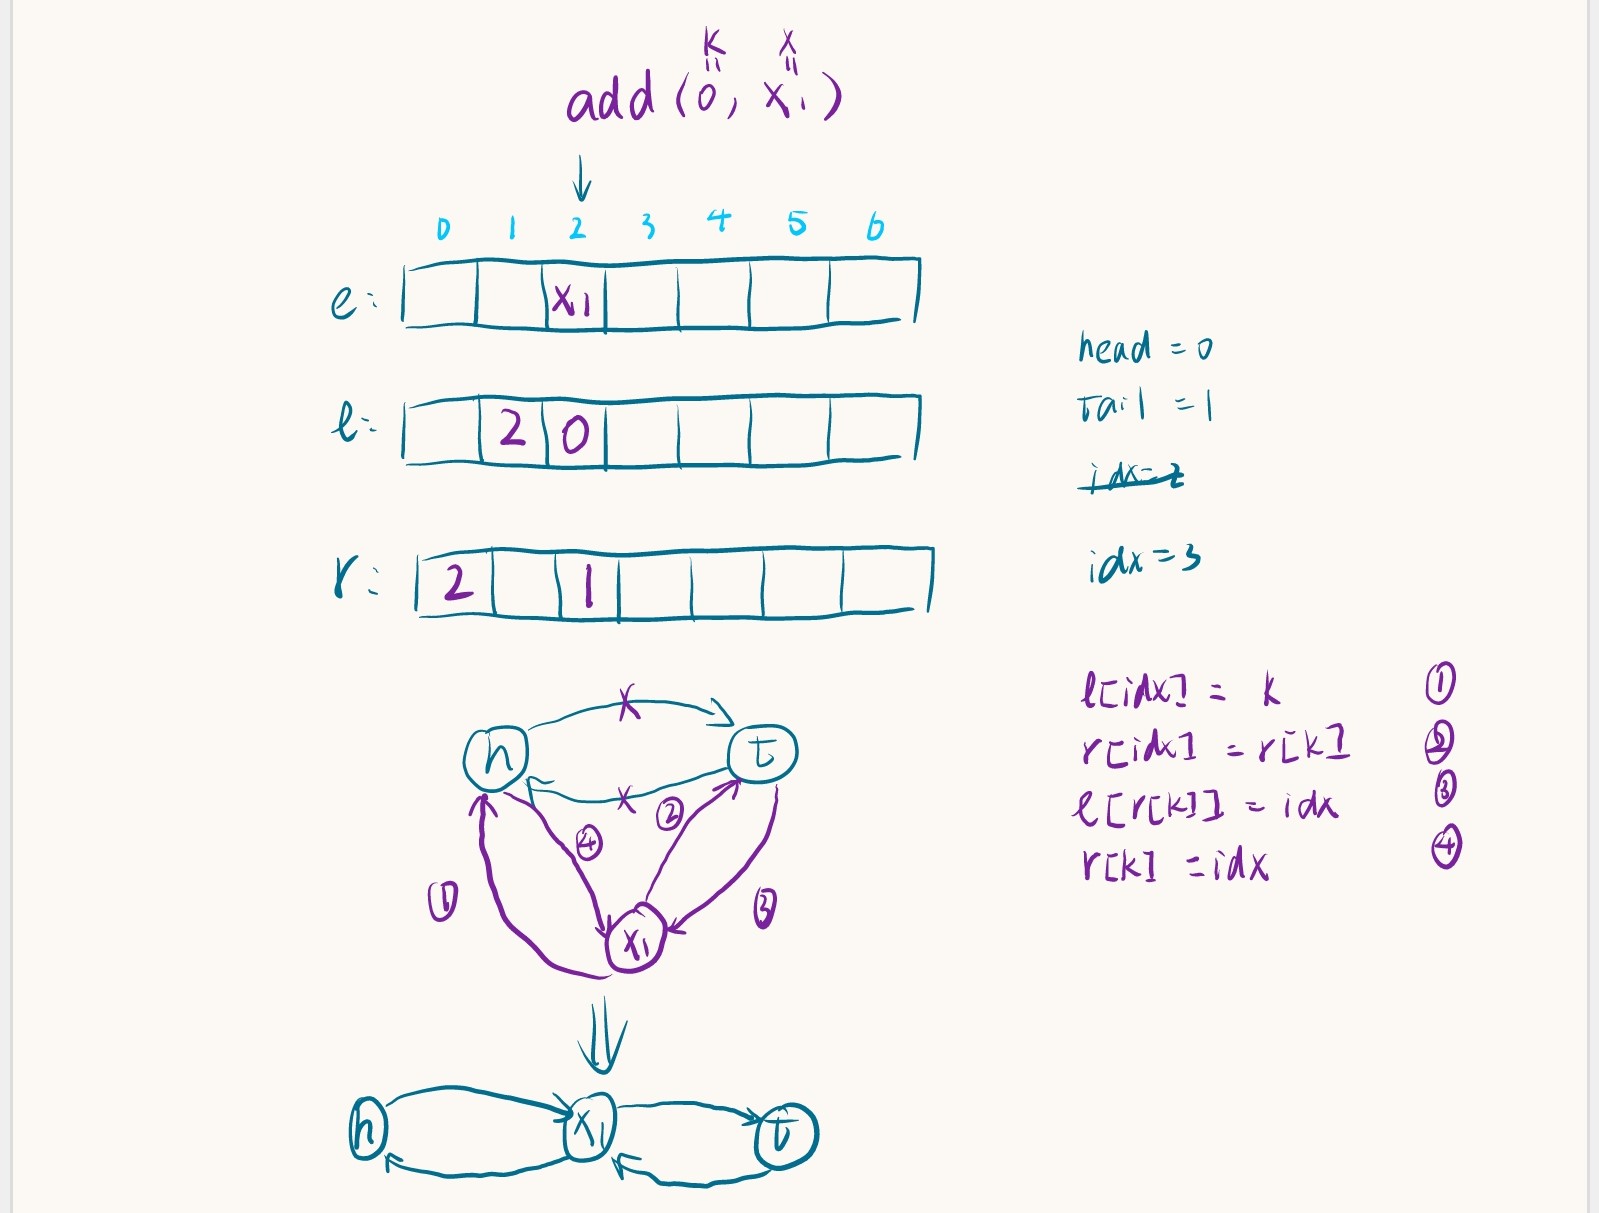 K X
= =
add (0, X₁)
0 1 2 3 4 5 6
e: X₁
l: 2 0
r: 2 1
head = 0
tail = 1
idx=2
idx=3
l[idx] = k ①
r[idx] = r[k] ②
l[r[k]] = idx ③
r[k] = idx ④
X
h t
X ②
④
① ③
X₁
h X₁ t